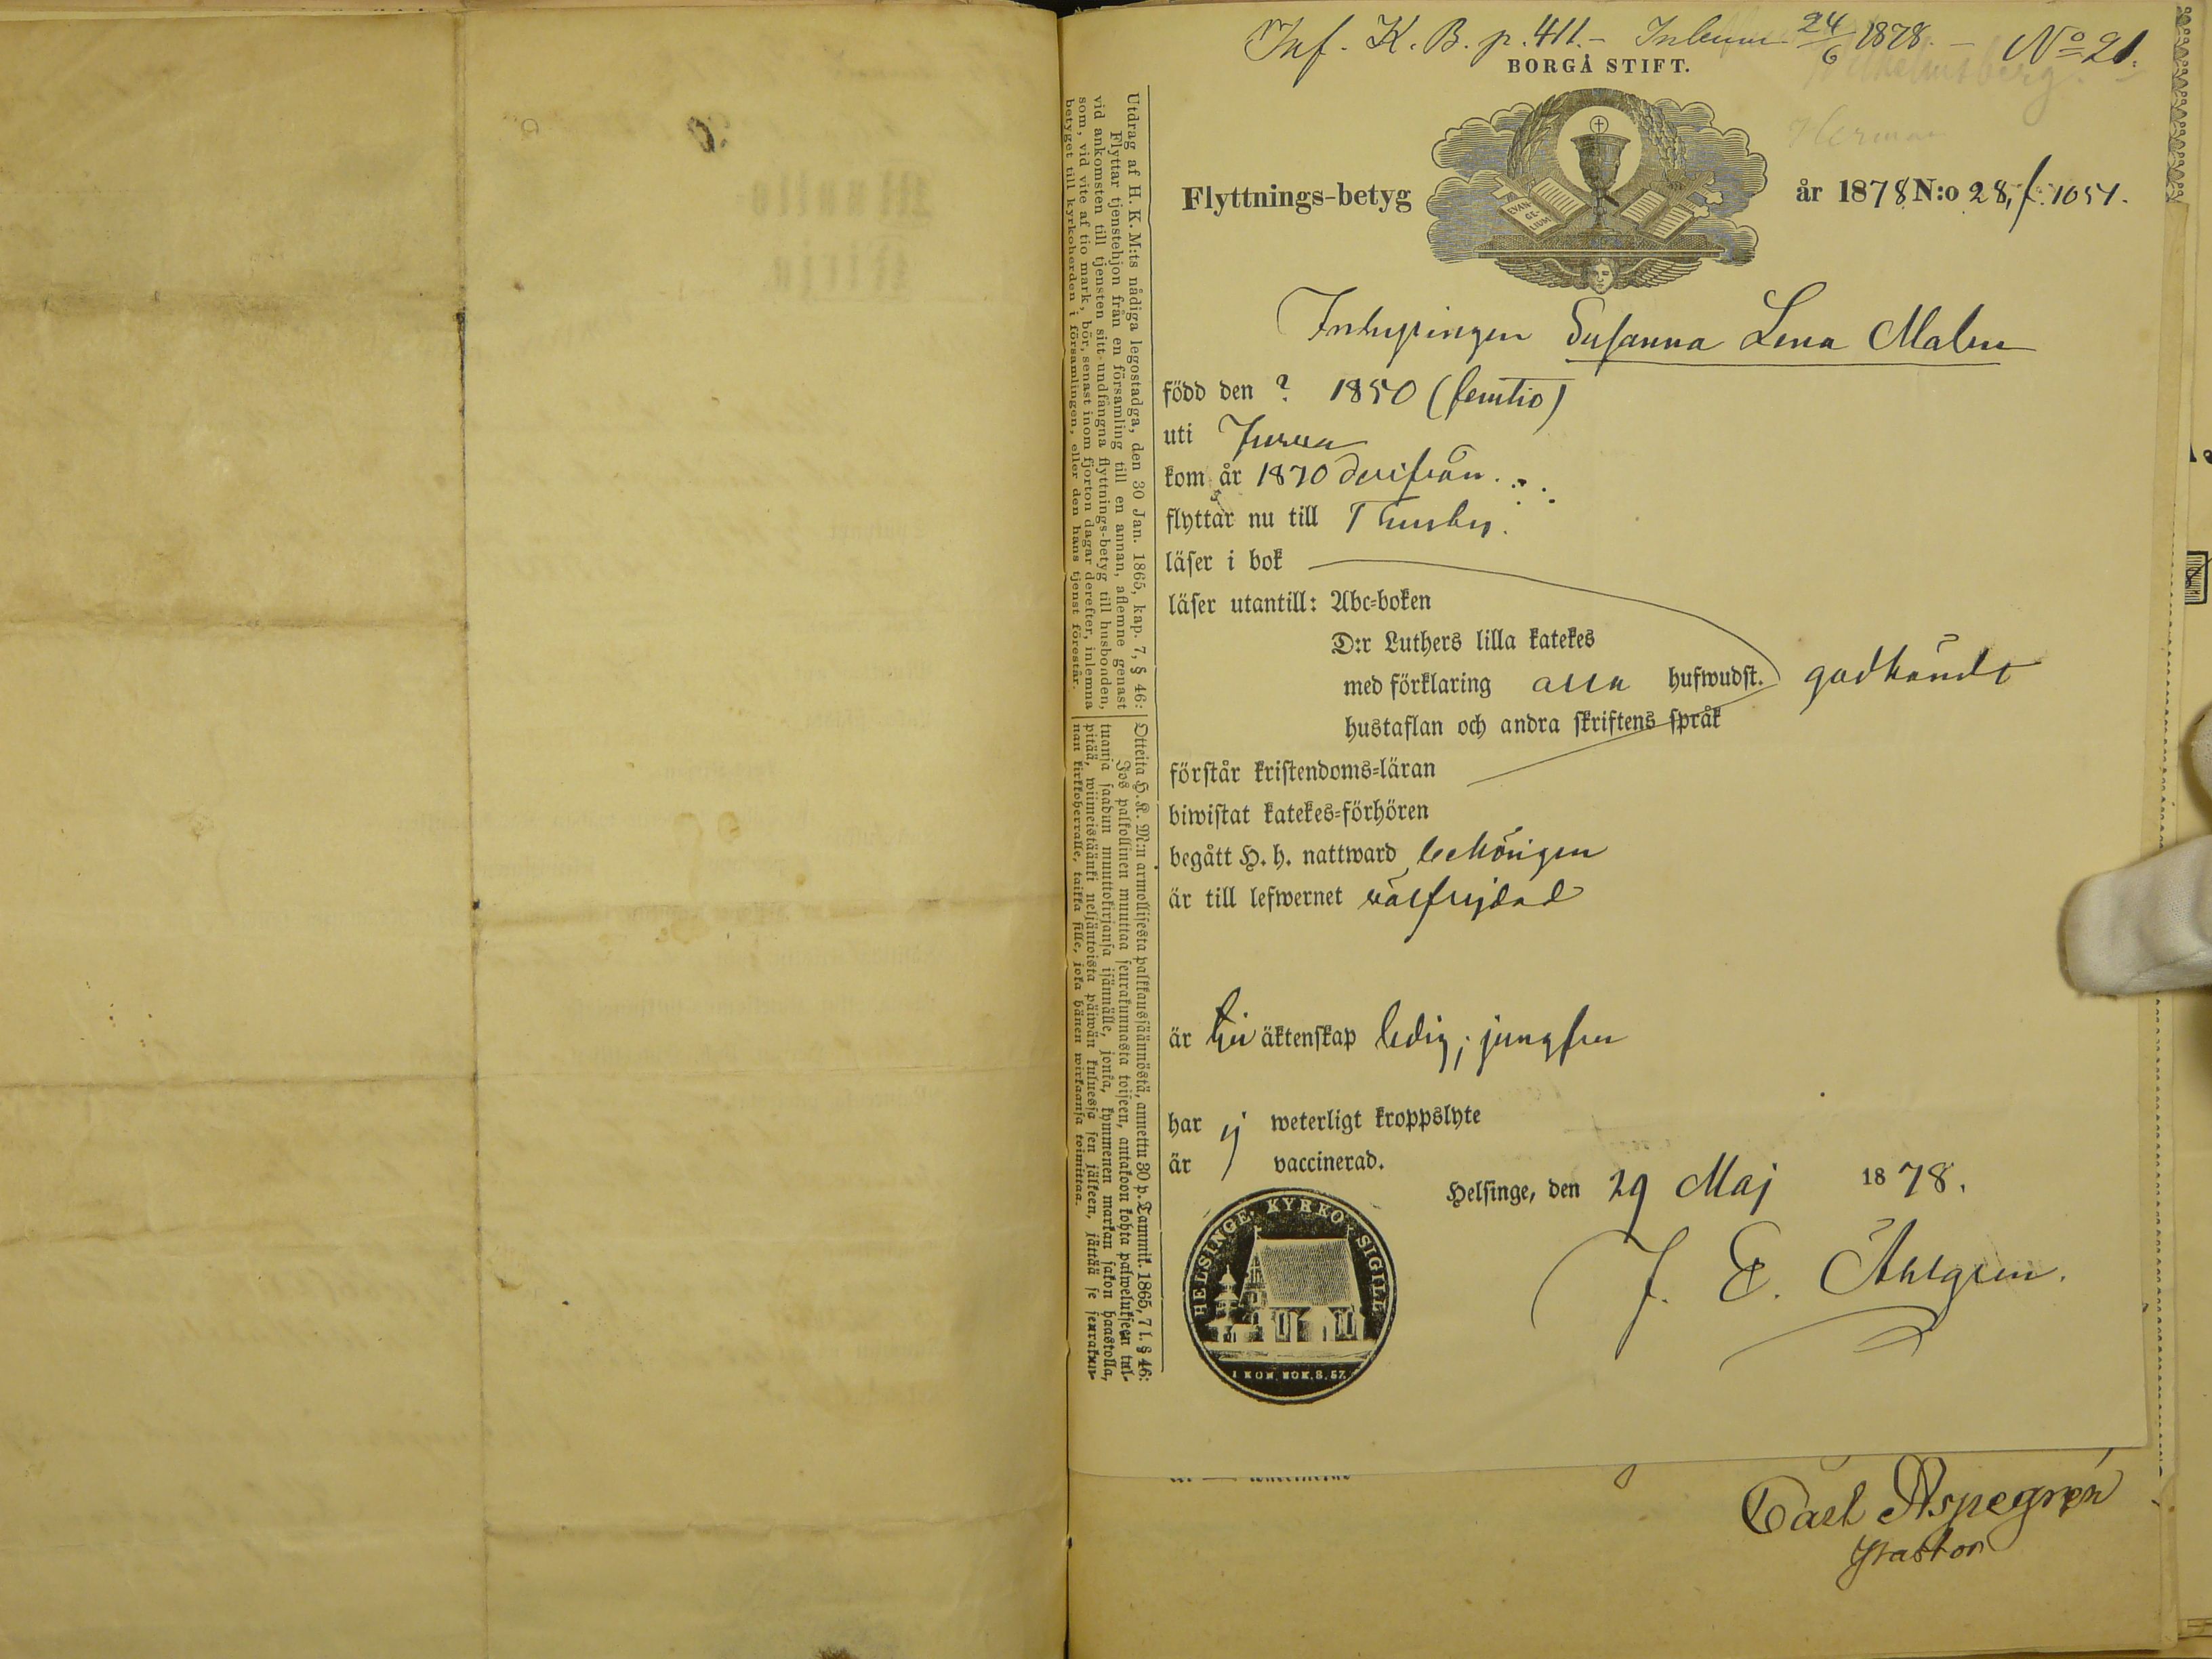 Inf. K. B. p. 411. – Inkom 24/6 1878. – No 21.
BORGÅ STIFT.
Herman
Flyttnings-betyg
EVAN-
GE-
LIUM
år 1878 N:o 28, f. 1051.
Inhysingen Susanna Lena Malm
född den ? 1850 (femtio)
uti Jurva
kom år 1870 derifrån.
flyttar nu till Thusby.
läser i bok
läser utantill: Abc-boken
D:r Luthers lilla katekes
med förklaring alla hufwudst. godkändt
hustaflan och andra skriftens språk
förstår kristendoms-läran
biwistat katekes-förhören
begått H. h. nattward behörigen
är till lefwernet välfrejdad
är till äktenskap ledig; jungfru
har ej weterligt kroppslyte
är vaccinerad.
Helsinge, den 29 Maj 1878.
J. E. Åhlgren.
HELSINGE KYRKO SIGILL
I KON. BOK. 8. 57.
Carl Aspegrén
Pastor
Utdrag af H. K. M:ts nådiga legostadga, den 30 Jan. 1865, kap. 7, § 46:
Flyttar tjenstehjon från en församling till en annan, aflemne genast
vid ankomsten till tjensten sitt undfångna flyttnings-betyg till husbonden,
som, vid vite af tio mark, bör, senast inom fjorton dagar derefter, inlemna
betyget till kyrkoherden i församlingen, eller den hans tjenst förestår.
Otteita H. K. M:n armollisesta palkkausjäännöstä, annettu 30 p. Tammik. 1865, 7 l. § 46:
Jos palkollinen muuttaa seurakunnasta toiseen, antakoon kohta palwelukseen tul-
tuansa saadun muuttokirjansa isännälle, jonka, kymmenen markan sakon haastolla,
pitää, wiimeistäänki neljäntoista päiwän kuluessa sen jälkeen, jättää se seurakun-
nan kirkkoherralle, taikka sille, joka hänen wirkaansa toimittaa.